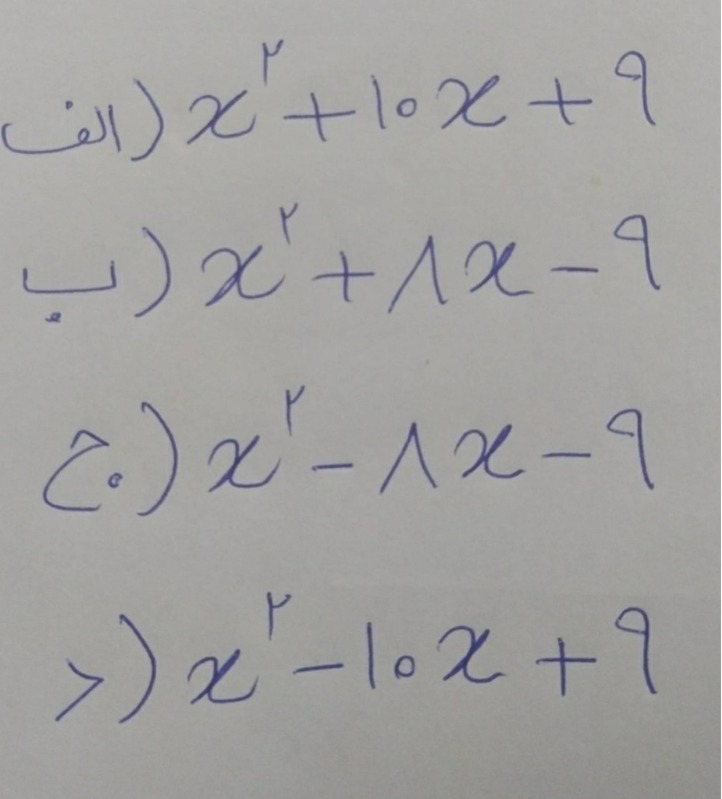 الف) x² + ۱۰x + ۹
ب) x² + ۸x - ۹
ج) x² - ۸x - ۹
د) x² - ۱۰x + ۹